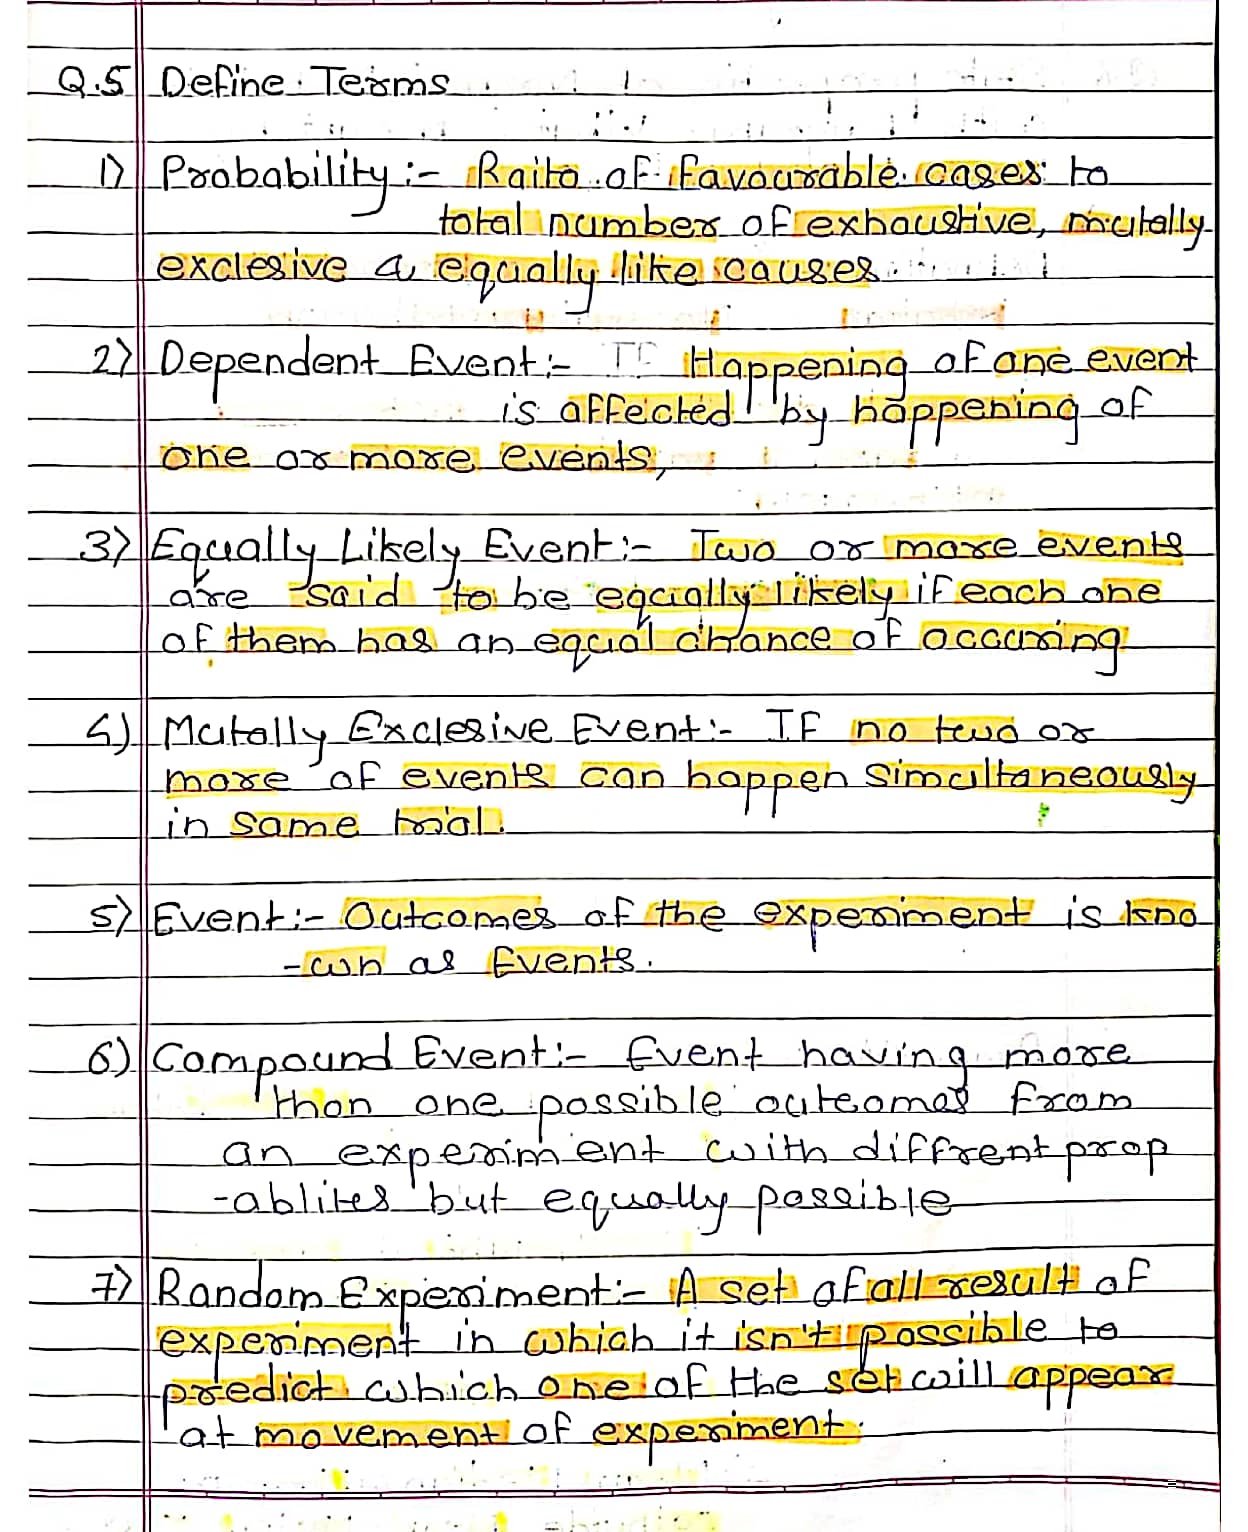 Q.5 Define Terms
1) Probability :- Raito of favourable cases to
total number of exhaustive, mutally
exclesive & equally like causes
2) Dependent Event :- If Happening of one event
is affected by happening of
one or more events,
3) Equally Likely Event :- Two or more events
are said to be equally likely if each one
of them has an equal chance of occuring
4) Mutally Exclesive Event :- If no two or
more of events can happen simultaneously
in same trial.
5) Event :- Outcomes of the experiment is kno
-wn as Events.
6) Compound Event :- Event having more
than one possible outcomes from
an experiment with diffrent prop
-ablites but equally possible
7) Random Experiment :- A set of all result of
experiment in which it isn't possible to
predict which one of the set will appear
at movement of experiment.